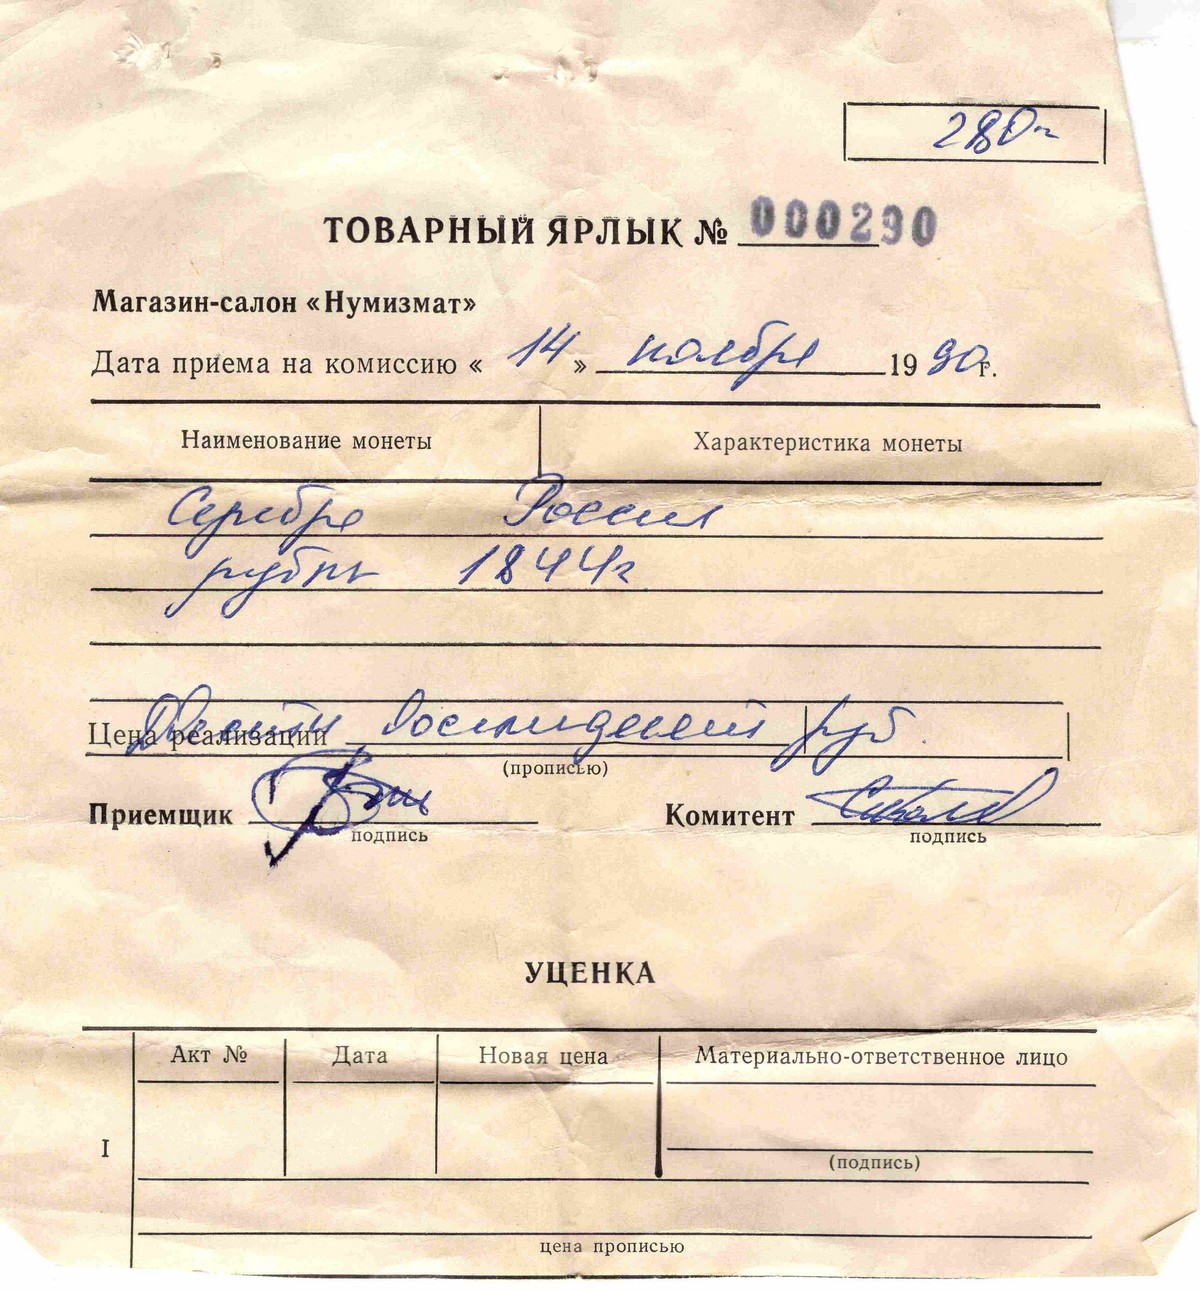 280=
ТОВАРНЫЙ ЯРЛЫК № 000290
Магазин-салон «Нумизмат»
Дата приема на комиссию « 14 » ноября 1990г.
Наименование монеты Характеристика монеты
Серебро Россия
рубль 1844г
Цена реализации Двести восемьдесят руб.
(прописью)
Приемщик Комитент
подпись подпись
УЦЕНКА
Акт № Дата Новая цена Материально-ответственное лицо
I
(подпись)
цена прописью